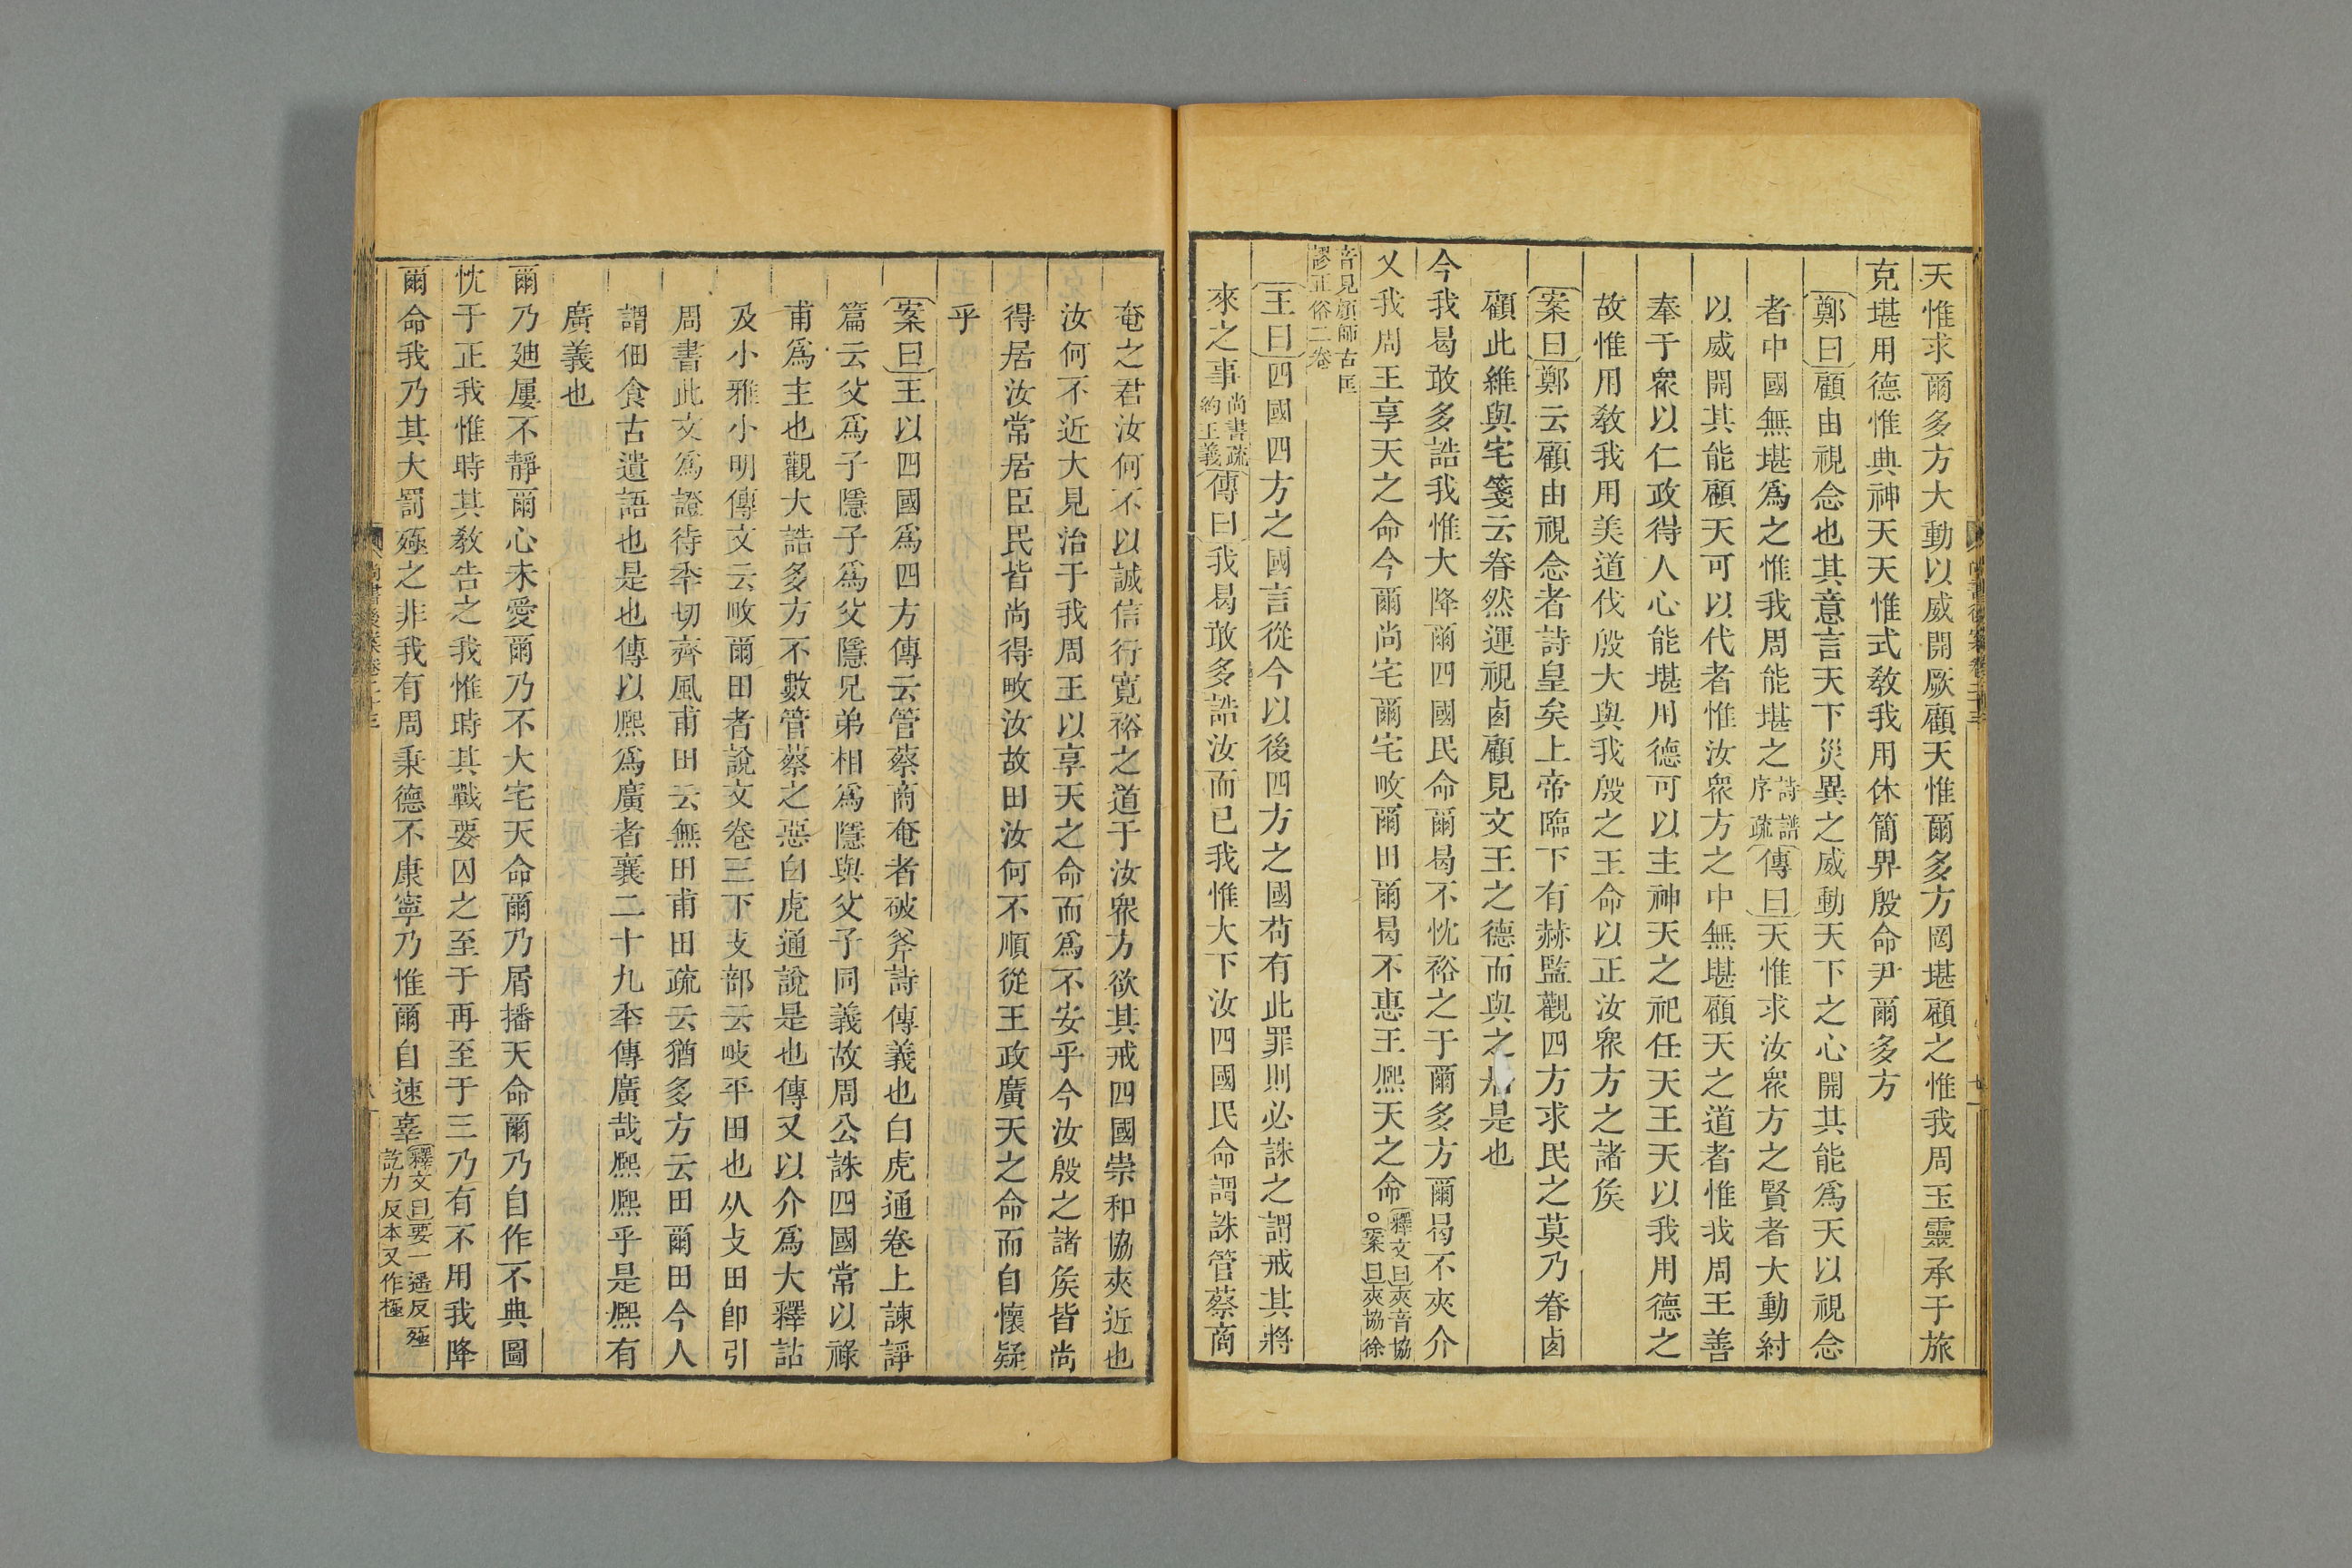 天惟求爾多方大動以威開厥顧天惟爾多方罔堪顧之惟我周王靈承于旅
克堪用德惟典神天天惟式教我用休簡畀殷命尹爾多方
鄭曰顧由視念也其意言天下災異之威動天下之心開其能為天以視念
者中國無堪為之惟我周能堪之詩譜序疏傳曰天惟求汝眾方之賢者大動紂
以威開其能顧天可以代者惟汝眾方之中無堪顧天之道者惟我周王善
奉于眾以仁政得人心能堪用德可以主神天之祀任天王天以我用德之
故惟用教我用美道伐殷大與我殷之王命以正汝眾方之諸矦
案曰鄭云顧由視念者詩皇矣上帝臨下有赫監觀四方求民之莫乃眷㢴
顧此維與宅箋云眷然運視㢴顧見文王之德而與之居是也
今我曷敢多誥我惟大降爾四國民命爾曷不忱裕之于爾多方爾曷不夾介
乂我周王享天之命今爾尚宅爾宅畋爾田爾曷不惠王熈天之命釋文曰夾音協○案曰夾協徐
音見顏師古匡謬正俗二卷
王曰四國四方之國言從今以後四方之國苟有此罪則必誅之謂戒其將
來之事尚書疏約王義傳曰我曷敢多誥汝而已我惟大下汝四國民命謂誅管蔡商
奄之君汝何不以誠信行寬裕之道于汝眾方欲其戒四國崇和協夾近也
汝何不近大見治于我周王以享天之命而為不安乎今汝殷之諸矦皆尚
得居汝常居臣民皆尚得畋汝故田汝何不順從王政廣天之命而自懷疑
乎
案曰王以四國為四方傳云管蔡商奄者破斧詩傳義也白虎通卷上諫諍
篇云父為子隱子為父隱兄弟相為隱與父子同義故周公誅四國常以祿
甫為主也觀大誥多方不數管蔡之惡白虎通說是也傳又以介為大釋詁
及小雅小明傳文云畋爾田者說文卷三下攴部云畋平田也从攴田卽引
周書此文為證待秊切齊風甫田云無田甫田疏云猶多方云田爾田今人
謂佃食古遺語也是也傳以熈為廣者襄二十九秊傳廣哉熈熈乎是熈有
廣義也
爾乃廸屢不靜爾心未愛爾乃不大宅天命爾乃屑播天命爾乃自作不典圖
忱于正我惟時其教告之我惟時其戰要囚之至于再至于三乃有不用我降
爾命我乃其大罰殛之非我有周秉德不康寧乃惟爾自速辜釋文曰要一遥反殛訖力反本又作極